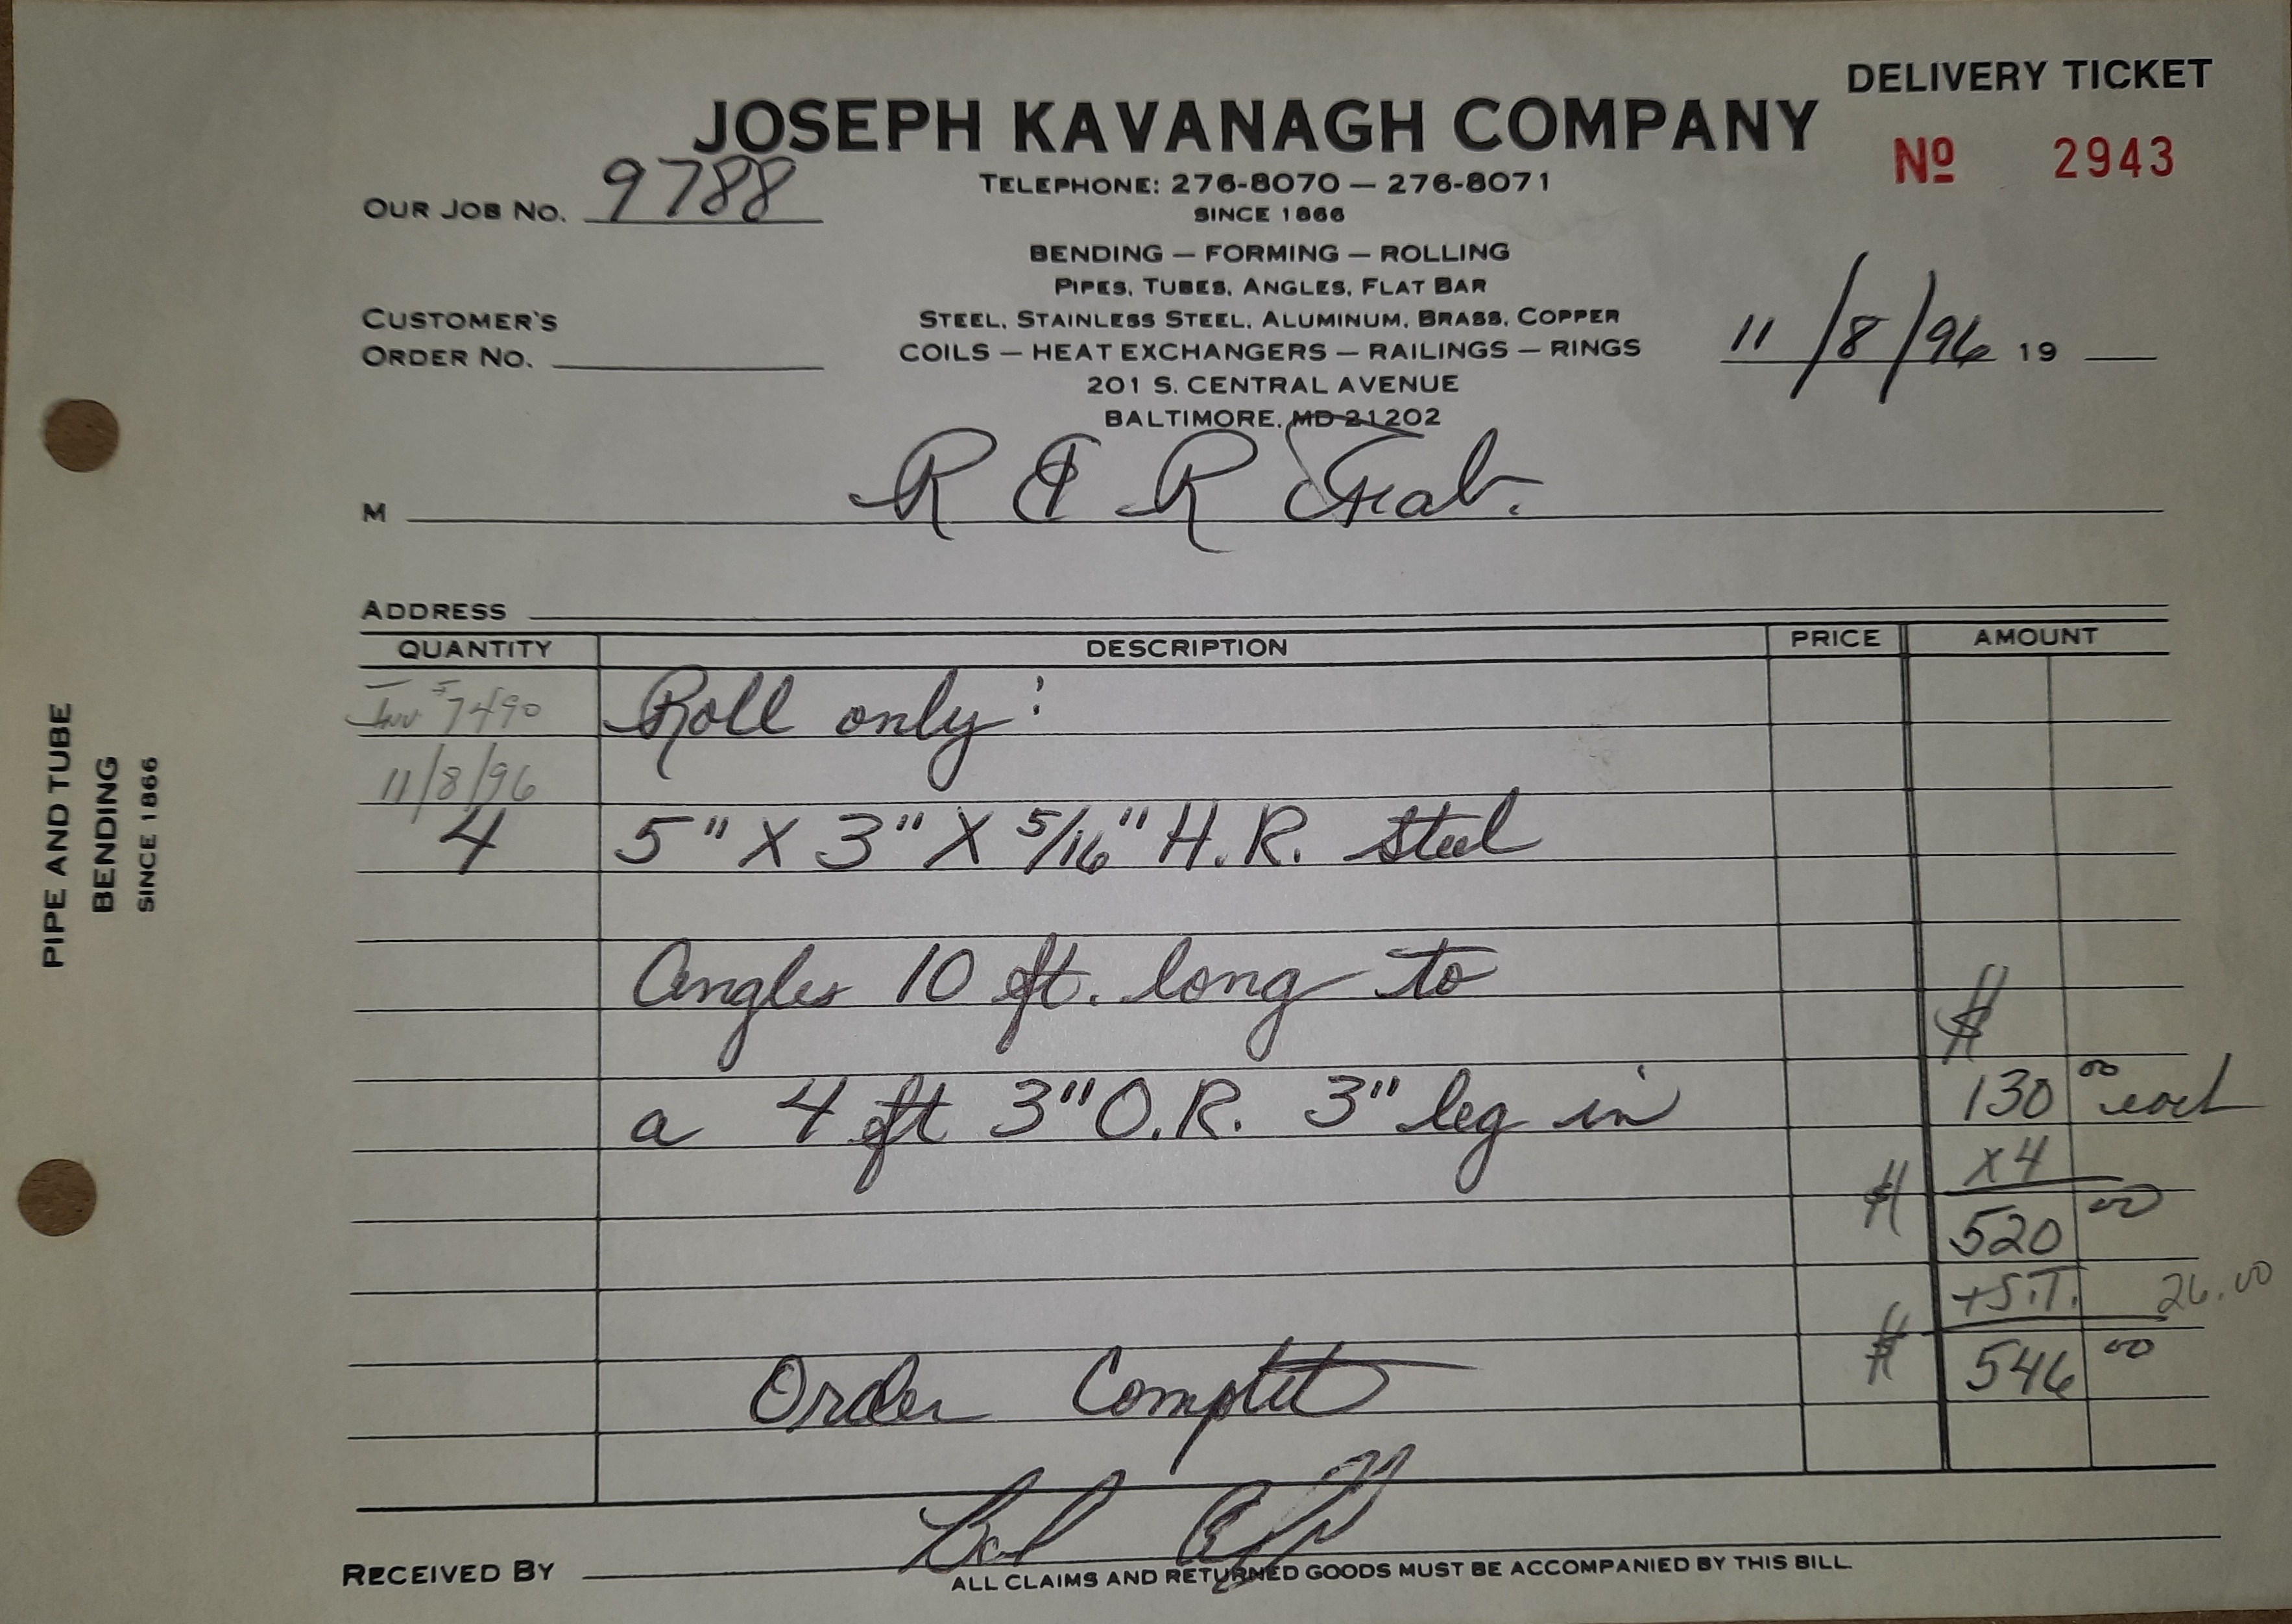 DELIVERY TICKET
JOSEPH KAVANAGH COMPANY
Nº 2943
OUR JOB NO. 9788
TELEPHONE: 276-8070 — 276-8071
SINCE 1866
BENDING — FORMING — ROLLING
PIPES, TUBES, ANGLES, FLAT BAR
CUSTOMER'S
ORDER NO.
STEEL, STAINLESS STEEL, ALUMINUM, BRASS, COPPER
COILS — HEAT EXCHANGERS — RAILINGS — RINGS
11/8/96 19
201 S. CENTRAL AVENUE
BALTIMORE, MD 21202
M R & R Fab.
ADDRESS
QUANTITY DESCRIPTION PRICE AMOUNT
Inv 7490 Roll only:
11/8/96
4 5" X 3" X 5/16" H.R. Steel
Angles 10 ft. long to
$
a 4 ft 3" O.R. 3" leg in 130 00 each
X 4
$ 520 00
+ S.T. 26.00
Order Complete $ 546 00
RECEIVED BY
ALL CLAIMS AND RETURNED GOODS MUST BE ACCOMPANIED BY THIS BILL.
PIPE AND TUBE
BENDING
SINCE 1866